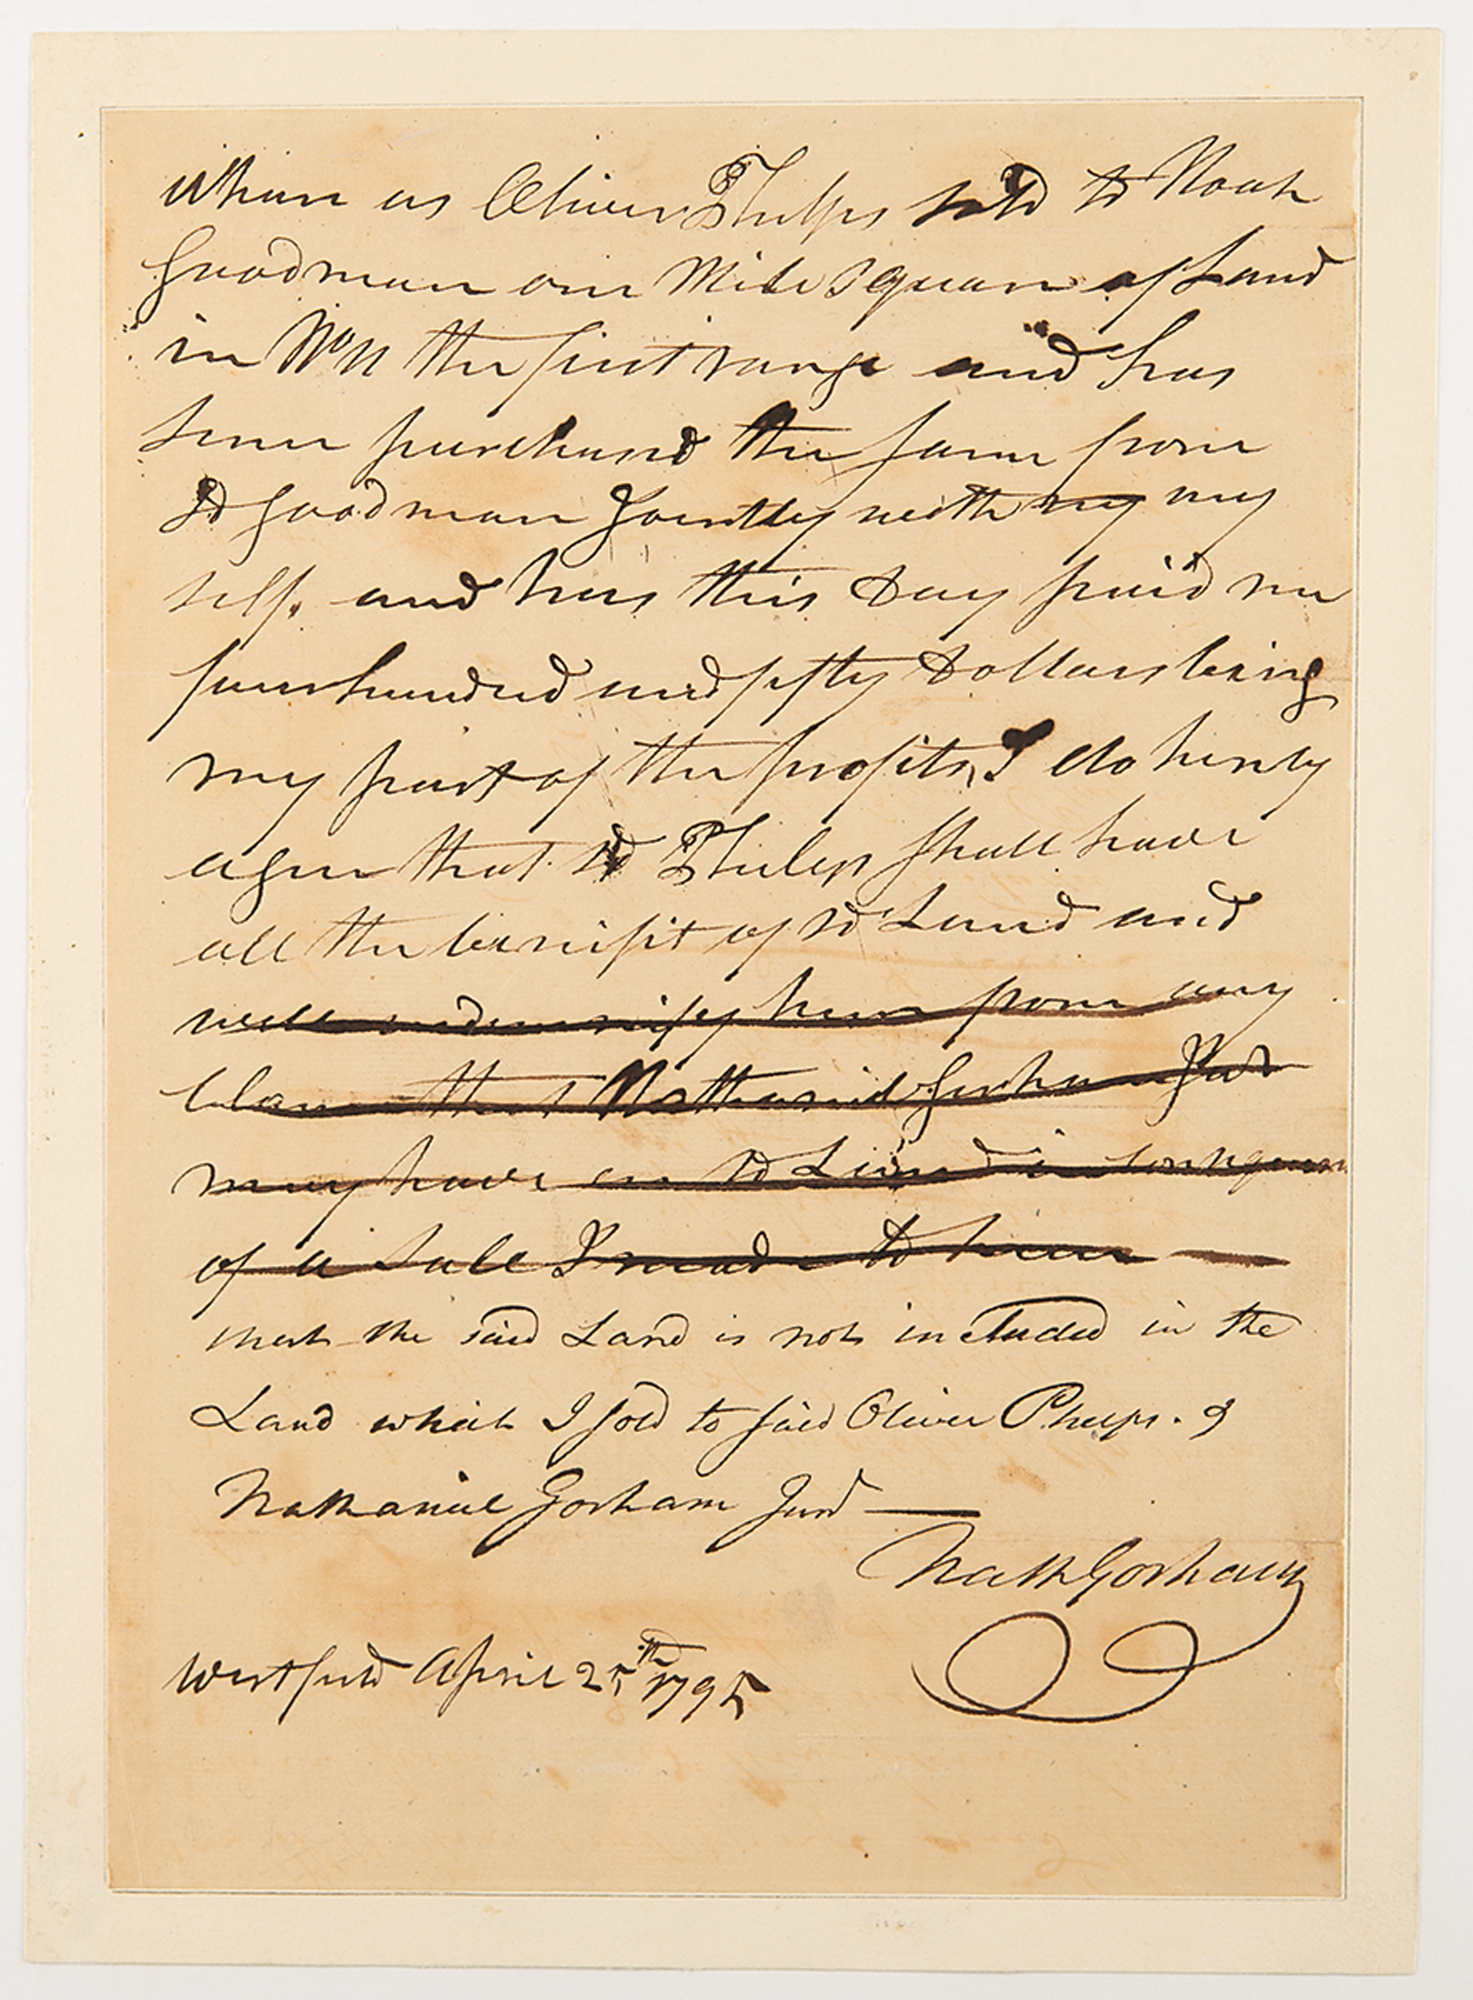 Whare as Oliver Phelps sold to Noah
Goodman one Mile Square of Land
in No 11 the first range and has
sence purchased the same from
Sd Goodman Jointly with my my
self. and has this day paid me
four hundred and fifty dollars being
my part of the profits, I do hereby
agree that sd Phelps shall have
all the benifit of sd Land and
will indemnify him from any
Claim that Nathaniel Gorham Jud
may have on sd Land in consequence
of a Sale I made to him
that the said Land is not included in the
Land which I sold to said Oliver Phelps. &
Nathaniel Gorham Jund —
Nath Gorham
Westfield April 25th 1795